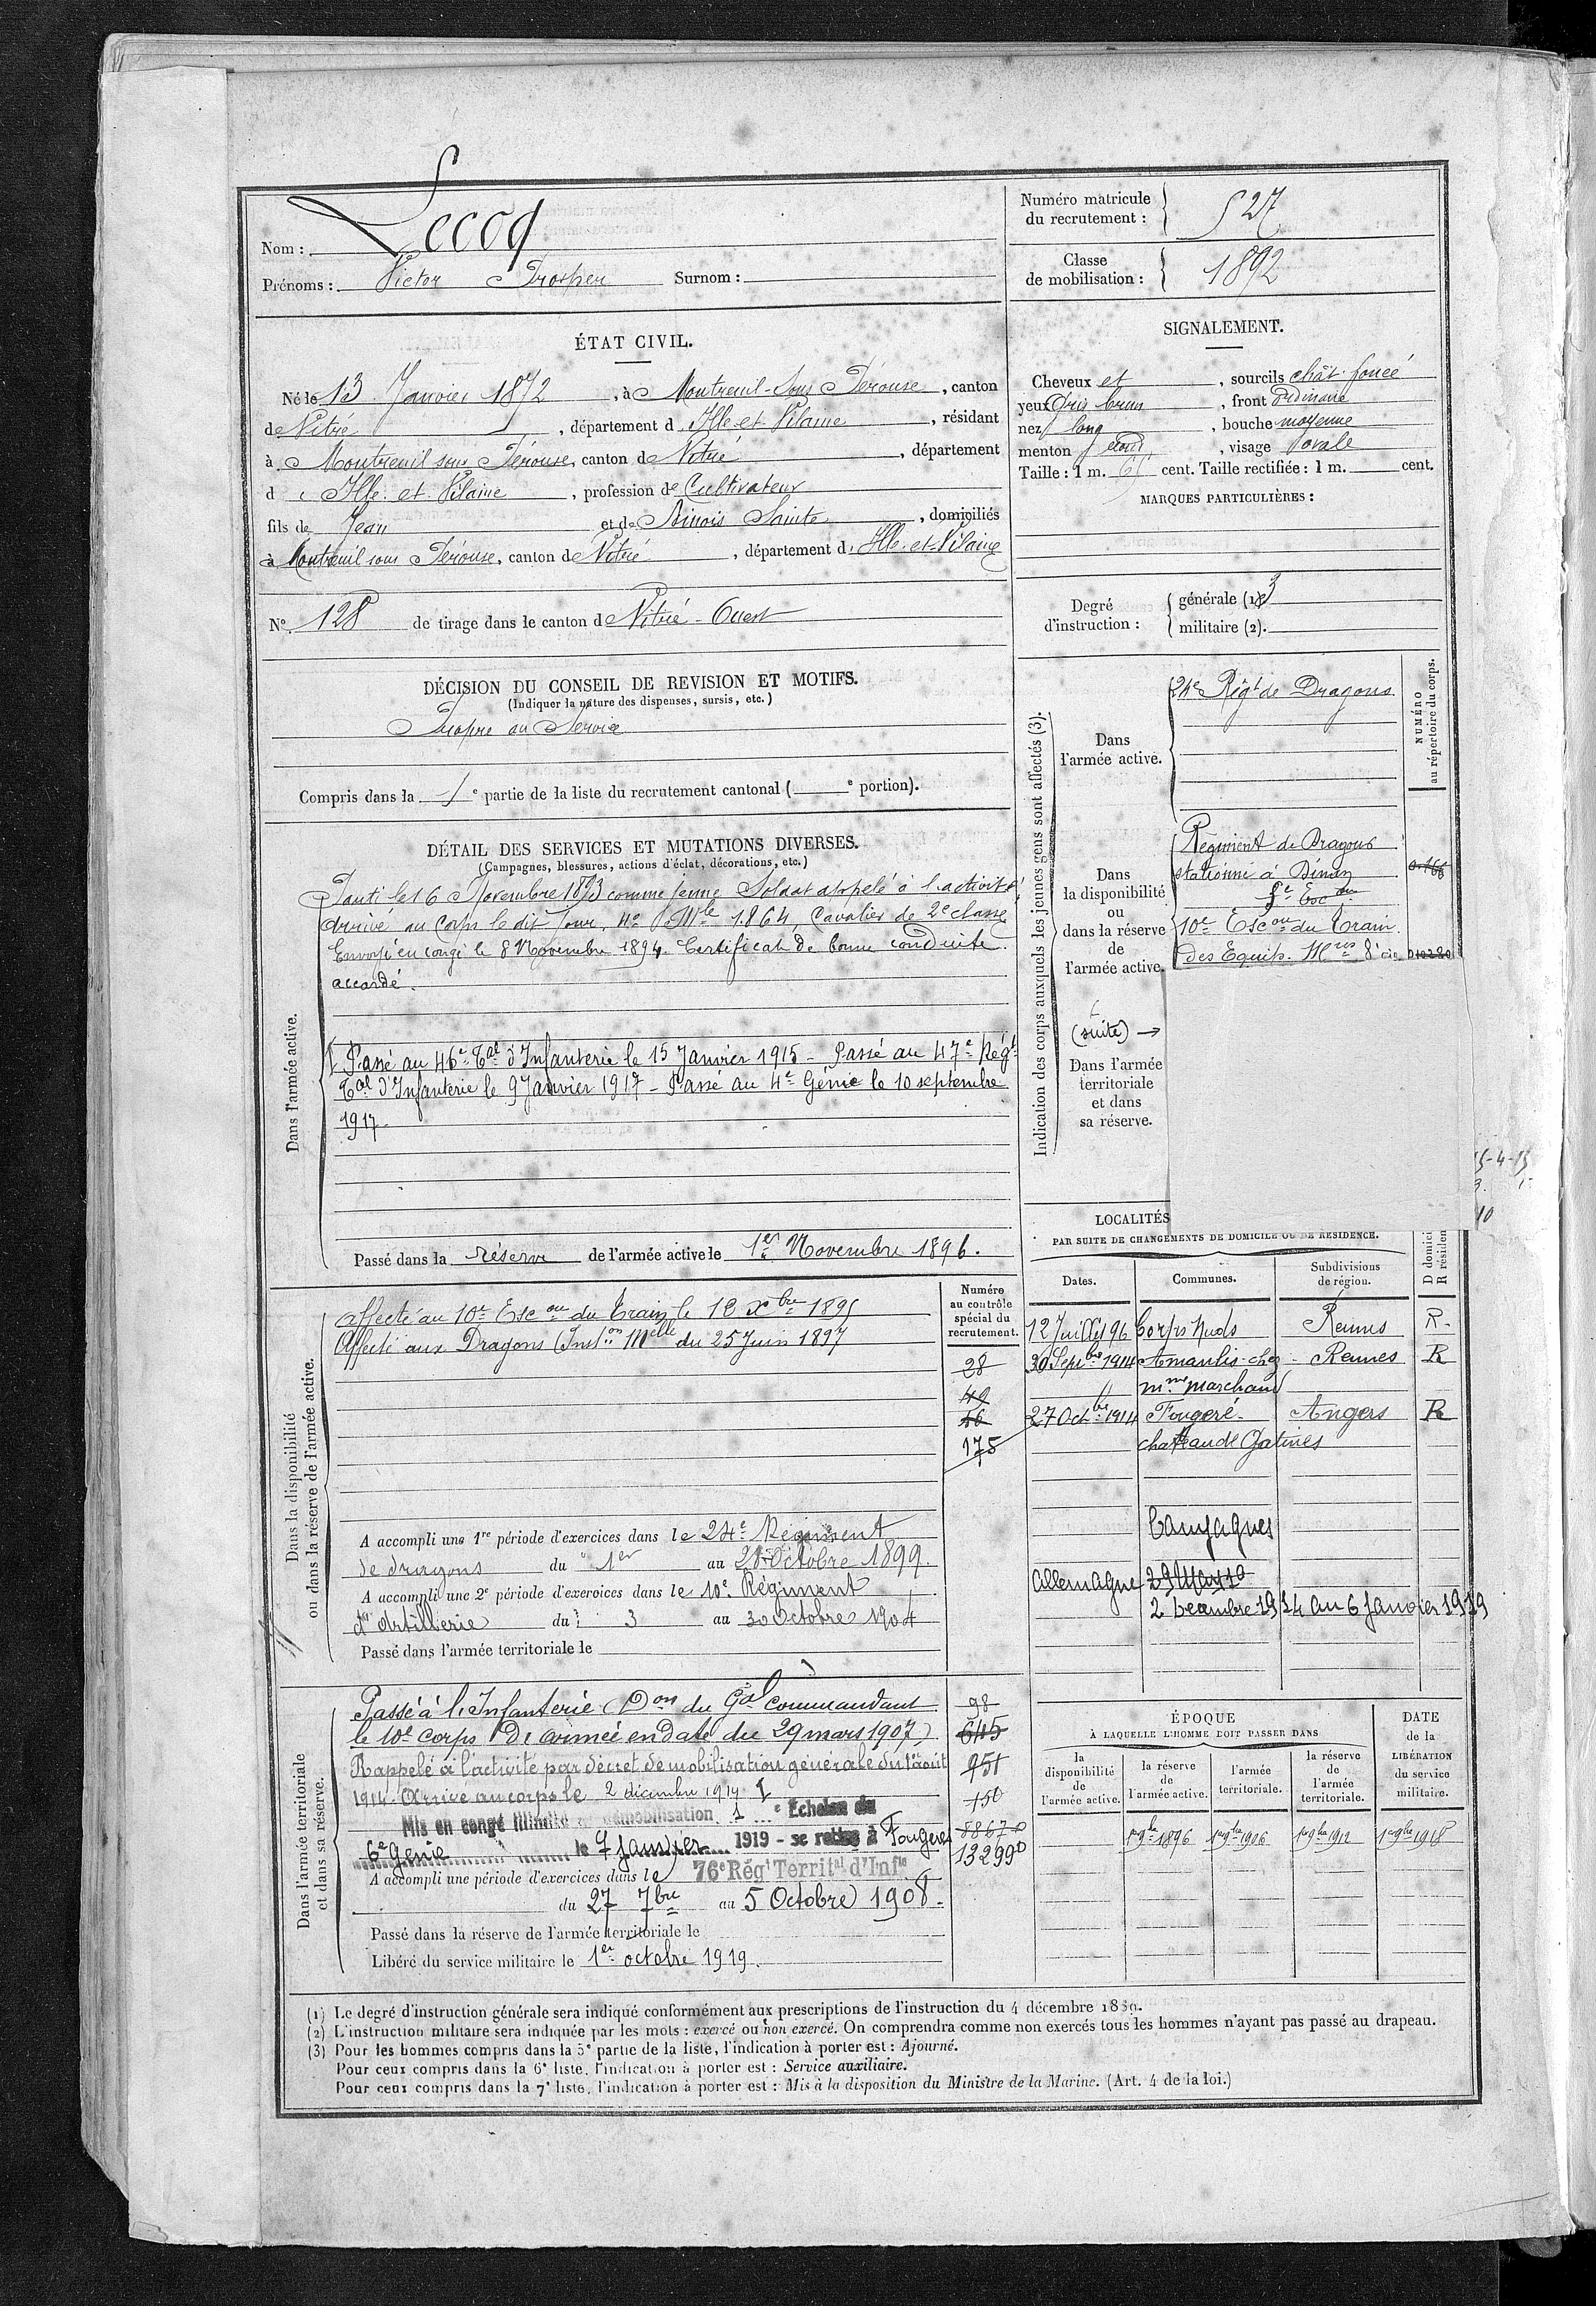 Nom : Lecoq
Prénoms : Victor Prosper Surnom :
Numéro matricule du recrutement : 527
Classe de mobilisation : 1892
ÉTAT CIVIL.
Né le 13 Janvier 1872, à Montreuil-Sous Pérouse, canton
de Vitré, département d Ille et Vilaine, résidant
à Montreuil sous Pérouse, canton de Vitré, département
d Ille et Vilaine, profession de Cultivateur
fils de Jean et de Binois Sainte, domiciliés
à Montreuil sous Pérouse, canton de Vitré, département d Ille-et-Vilaine
N° 128 de tirage dans le canton d Vitré-Ouest
SIGNALEMENT.
Cheveux et, sourcils chât. foncé
yeux Gris brun, front ordinaire
nez long, bouche moyenne
menton rond, visage ovale
Taille : 1 m. cent. Taille rectifiée : 1 m. cent.
MARQUES PARTICULIÈRES :
Degré d'instruction :
générale (1) 3
militaire (2).
DÉCISION DU CONSEIL DE REVISION ET MOTIFS.
(Indiquer la nature des dispenses, sursis, etc.)
Propre au Service
Compris dans la 1e partie de la liste du recrutement cantonal ( e portion).
Indication des corps auxquels les jeunes gens sont affectés (3).
NUMÉRO
au répertoire du corps.
Dans l'armée active.
24e Régt de Dragons
Dans la disponibilité ou dans la réserve de l'armée active.
Régiment de Dragons
stationné à Dinan
10e Escon du Train
des Equip. Mres 8e cie
(suite) →
Dans l'armée territoriale et dans sa réserve.
DÉTAIL DES SERVICES ET MUTATIONS DIVERSES.
(Campagnes, blessures, actions d'éclat, décorations, etc.)
Dans l'armée active.
Parti le 16 Novembre 1893 comme jeune Soldat appelé à l'activité
Arrivé au Corps le dit Jour, No Mle 1.864, Cavalier de 2e classe
Envoyé en congé le 8 Novembre 1894. Certificat de bonne conduite
accordé.
Passé au 46e Tal d'Infanterie le 15 Janvier 1915 - Passé au 47e Régt
Tal d'Infanterie le 9 Janvier 1917 - Passé au 4e Génie le 10 septembre
1917
Passé dans la réserve de l'armée active le 1er Novembre 1896.
15-4-15
LOCALITÉS
PAR SUITE DE CHANGEMENTS DE DOMICILE OU DE RÉSIDENCE.
Dates. Communes. Subdivisions de région.
12 Juillet 96 Corps Nuds Rennes R.
30 Septbre 1914 Amanlis-chez Rennes R
mme marchand
27 Octbre 1914 Fougeré- Angers R
chateau de Gatines
Campagnes
Allemagne
2 Decembre 1914 au 6 Janvier 1919
Dans la disponibilité
ou dans la réserve de l'armée active.
Numéro au contrôle spécial du recrutement.
Affecté au 10e Escon du Train le 12 Xbre 1895
Affecté aux Dragons (Inston Melle du 25 Juin 1897
28
49
46
175
A accompli une 1re période d'exercices dans le 24e Régiment
de dragons du 1er au 28 Octobre 1899.
A accompli une 2e période d'exercices dans le 10e Régiment
d'Artillerie du 3 au 30 Octobre 1904
Passé dans l'armée territoriale le
Dans l'armée territoriale
et dans sa réserve.
Passé à l'Infanterie (Don du Gal commandant
le 10e corps D'armée en date du 29 mars 1907)
Rappelé à l'activité par décret de mobilisation générale du 1er août
1914. Arrivé au corps le 2 décembre 1914
Mis en congé illimité de démobilisation 1e Echelon du
6e Génie le 7 Janvier 1919 - se retire à Fougeré
A accompli une période d'exercices dans le 76e Régt Territal d'Infie
du 27 7bre au 5 Octobre 1908.
Passé dans la réserve de l'armée territoriale le
Libéré du service militaire le 1er octobre 1919.
98
645
951
150
8867
13299
ÉPOQUE
À LAQUELLE L'HOMME DOIT PASSER DANS
la disponibilité de l'armée active.
la réserve de l'armée active.
l'armée territoriale.
la réserve de l'armée territoriale.
DATE de la LIBÉRATION du service militaire.
1er 9bre 1896 1er 9bre 1906 1er 9bre 1912 1er 9bre 1918
(1) Le degré d'instruction générale sera indiqué conformément aux prescriptions de l'instruction du 4 décembre 1889.
(2) L'instruction militaire sera indiquée par les mots : exercé ou non exercé. On comprendra comme non exercés tous les hommes n'ayant pas passé au drapeau.
(3) Pour les hommes compris dans la 5e partie de la liste, l'indication à porter est : Ajourné.
Pour ceux compris dans la 6e liste, l'indication à porter est : Service auxiliaire.
Pour ceux compris dans la 7e liste, l'indication à porter est : Mis à la disposition du Ministre de la Marine. (Art. 4 de la loi.)